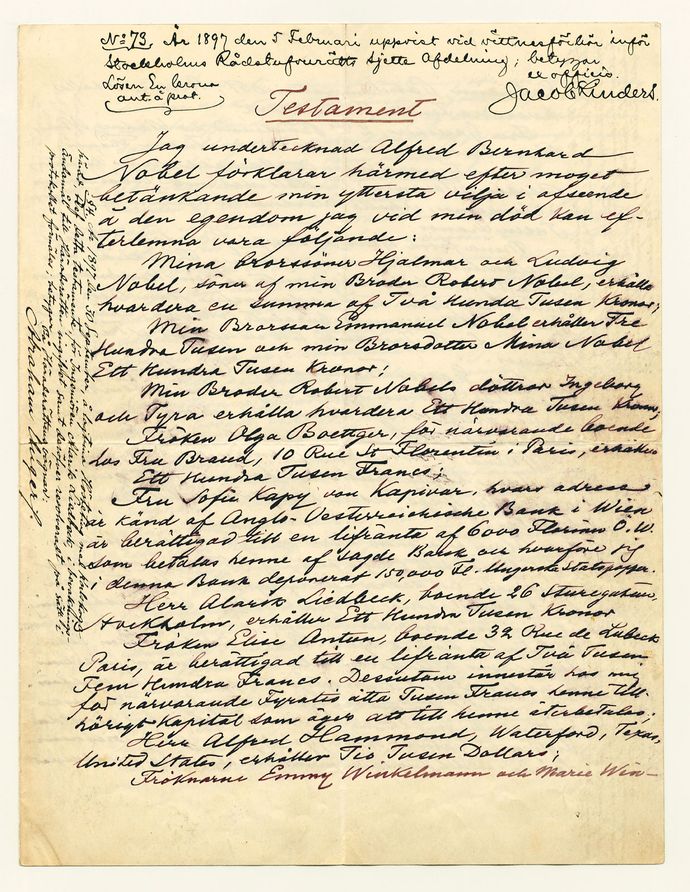 No 73. År 1897 den 5 Februari uppvist vid vittnesförhör inför
Stockholms Rådstufvurätts sjette Afdelning; betygar
ex officio.
Lösen En krona
ant. å prot.
Jacob Linders.
Testament
Jag undertecknad Alfred Bernhard
Nobel förklarar härmed efter moget
betänkande min yttersta vilja i afseende
å den egendom jag vid min död kan ef-
terlemna vara följande:
Mina Brorssöner Hjalmar och Ludvig
Nobel, söner af min Broder Robert Nobel, erhålla
hvardera en summa af Två Hundra Tusen Kronor;
Min Brorsson Emmanuel Nobel erhåller Tre
Hundra Tusen och min Brorsdotter Mina Nobel
Ett Hundra Tusen Kronor;
Min Broder Robert Nobels döttrar Ingeborg
och Tyra erhålla hvardera Ett Hundra Tusen Kronor;
Fröken Olga Boettger, för närvarande boende
hos Fru Brand, 10 Rue St Florentin i Paris, erhåller
Ett Hundra Tusen Francs;
Fru Sofie Kapy von Kapivar, hvars adress
är känd af Anglo-Oesterreichische Bank i Wien
är berättigad till en lifränta af 6000 Florins Ö.W.
som betalas henne af sagde Bank och hvarföre jag
i denna Bank deponerat 150,000 Fl. i Ungerska Statspapper.
Herr Alarik Liedbeck, boende 26 Sturegatan,
Stockholm, erhåller Ett Hundra Tusen Kronor
Fröken Elise Antun, boende 32 Rue de Lubeck
Paris, är berättigad till en lifränta af Två Tusen
Fem Hundra Francs. Dessutom innestår hos mig
för närvarande Fyratio åtta Tusen Francs henne till-
hörigt kapital som äger att till henne återbetalas;
Herr Alfred Hammond, Waterford, Texas,
United States, erhåller Tio Tusen Dollars;
Fröknarne Emmy Winkelmann och Marie Win-